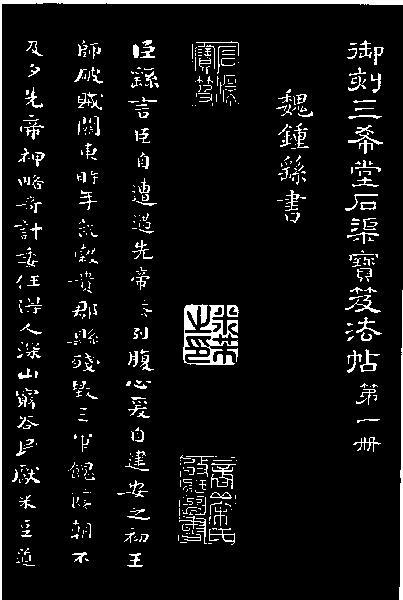 御刻三希堂石渠寶笈法帖第一册
魏鍾繇書
石渠寶笈
米芾之印
臣繇言臣自遭遇先帝忝列腹心爰自建安之初王
師破賊關東時年荒穀貴郡縣殘毀三軍餽饟朝不
及夕先帝神略奇計委任得人深山窮谷民獻米豆道